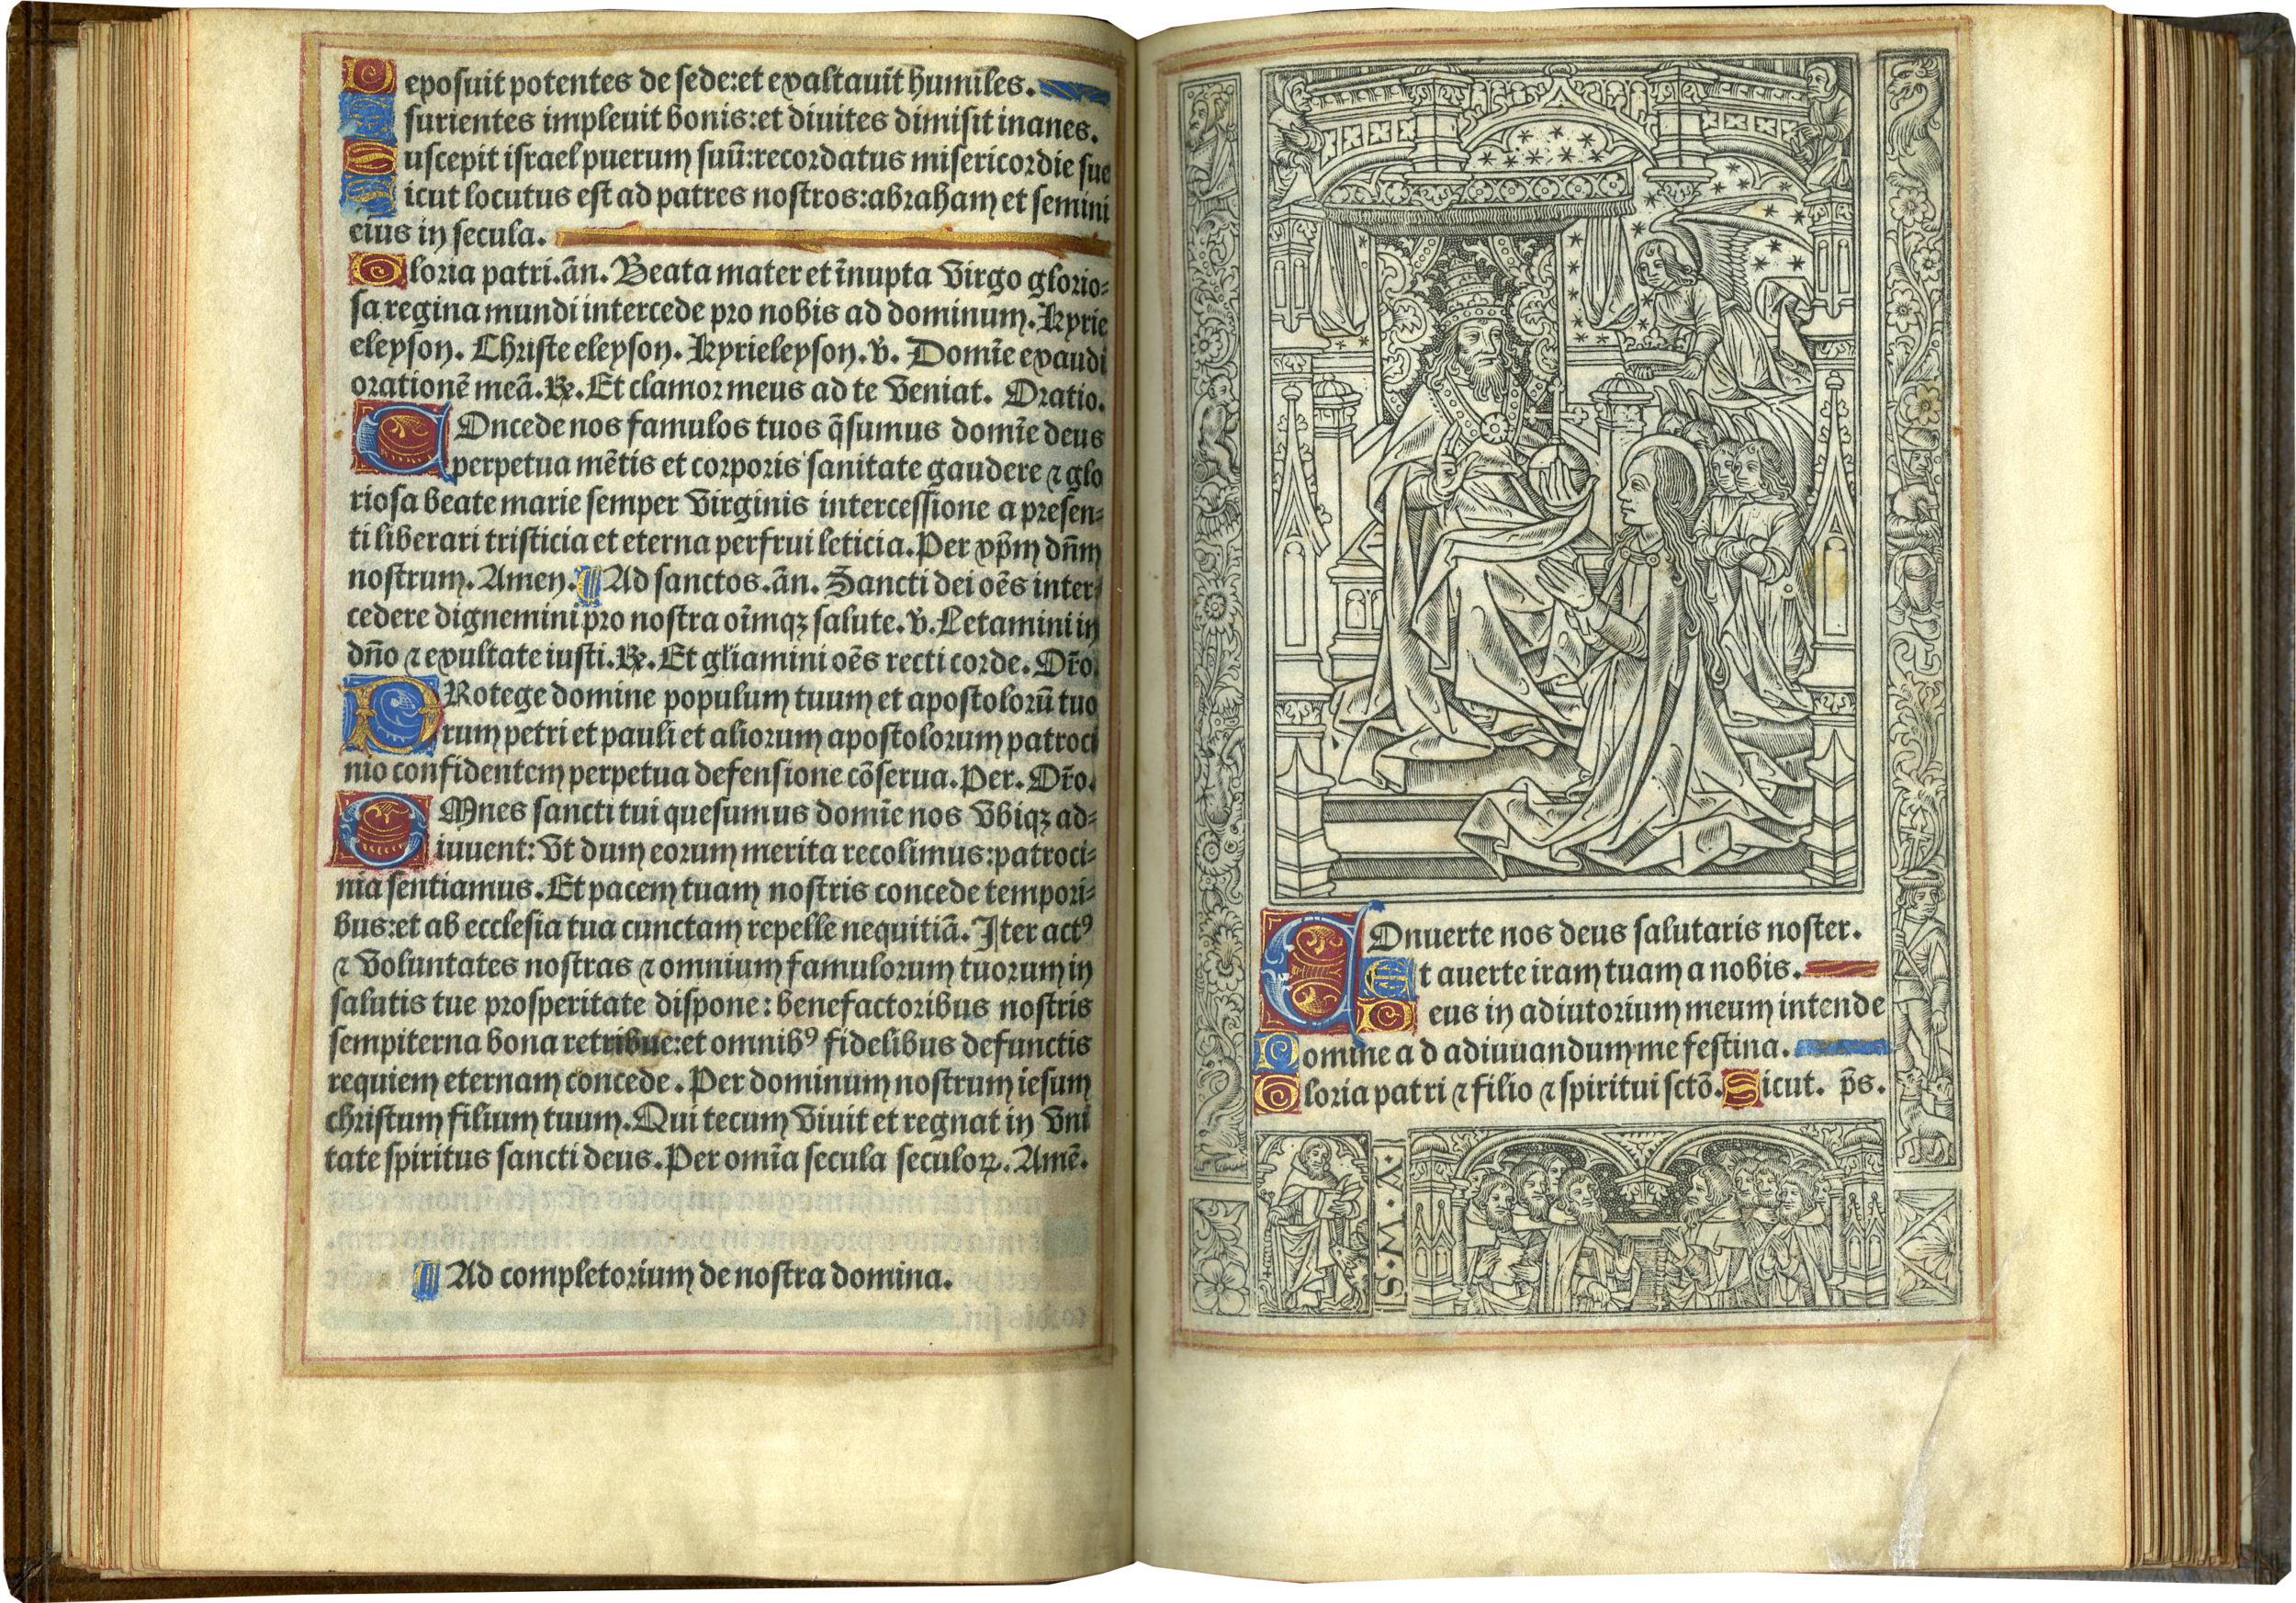 Deposuit potentes de sede:et exaltauit humiles.
Esurientes impleuit bonis:et diuites dimisit inanes.
Suscepit israel puerum suū:recordatus misericordie sue
Sicut locutus est ad patres nostros:abraham et semini
eius in secula.
Gloria patri.añ. Beata mater et īnupta virgo glorio-
sa regina mundi intercede pro nobis ad dominum. Kyrie
eleyson. Christe eleyson. Kyrieleyson.v̄. Domīe exaudi
orationē meā.℞.Et clamor meus ad te veniat. Oratio.
COncede nos famulos tuos q̄sumus domīe deus
perpetua mētis et corporis sanitate gaudere ⁊ glo
riosa beate marie semper virginis intercessione a presen-
ti liberari tristicia et eterna perfrui leticia. Per xp̄m dn̄m
nostrum. Amen. ¶ Ad sanctos.añ. Sancti dei oēs inter-
cedere dignemini pro nostra oīmqꝫ salute.v̄. Letamini in
dn̄o ⁊ exultate iusti.℞.Et gl̄iamini oēs recti corde. Or̄o.
PRotege domine populum tuum et apostolorū tuo
rum petri et pauli et aliorum apostolorum patroci
nio confidentem perpetua defensione cōserua. Per. Or̄o.
OMnes sancti tui quesumus domīe nos vbiqꝫ ad-
iuuent: vt dum eorum merita recolimus:patroci-
nia sentiamus. Et pacem tuam nostris concede tempori-
bus:et ab ecclesia tua cunctam repelle nequitiā. Iter actꝰ
⁊ voluntates nostras ⁊ omnium famulorum tuorum in
salutis tue prosperitate dispone: benefactoribus nostris
sempiterna bona retribue:et omnibꝰ fidelibus defunctis
requiem eternam concede. Per dominum nostrum iesum
christum filium tuum. Qui tecum viuit et regnat in vni
tate spiritus sancti deus. Per omīa secula seculoꝝ. Amē.
¶ Ad completorium de nostra domina.
COnuerte nos deus salutaris noster.
Et auerte iram tuam a nobis.
Deus in adiutorium meum intende
Domine ad adiuuandum me festina.
Gloria patri ⁊ filio ⁊ spiritui sctō. Sicut. p̄s.
S.M.V.I.